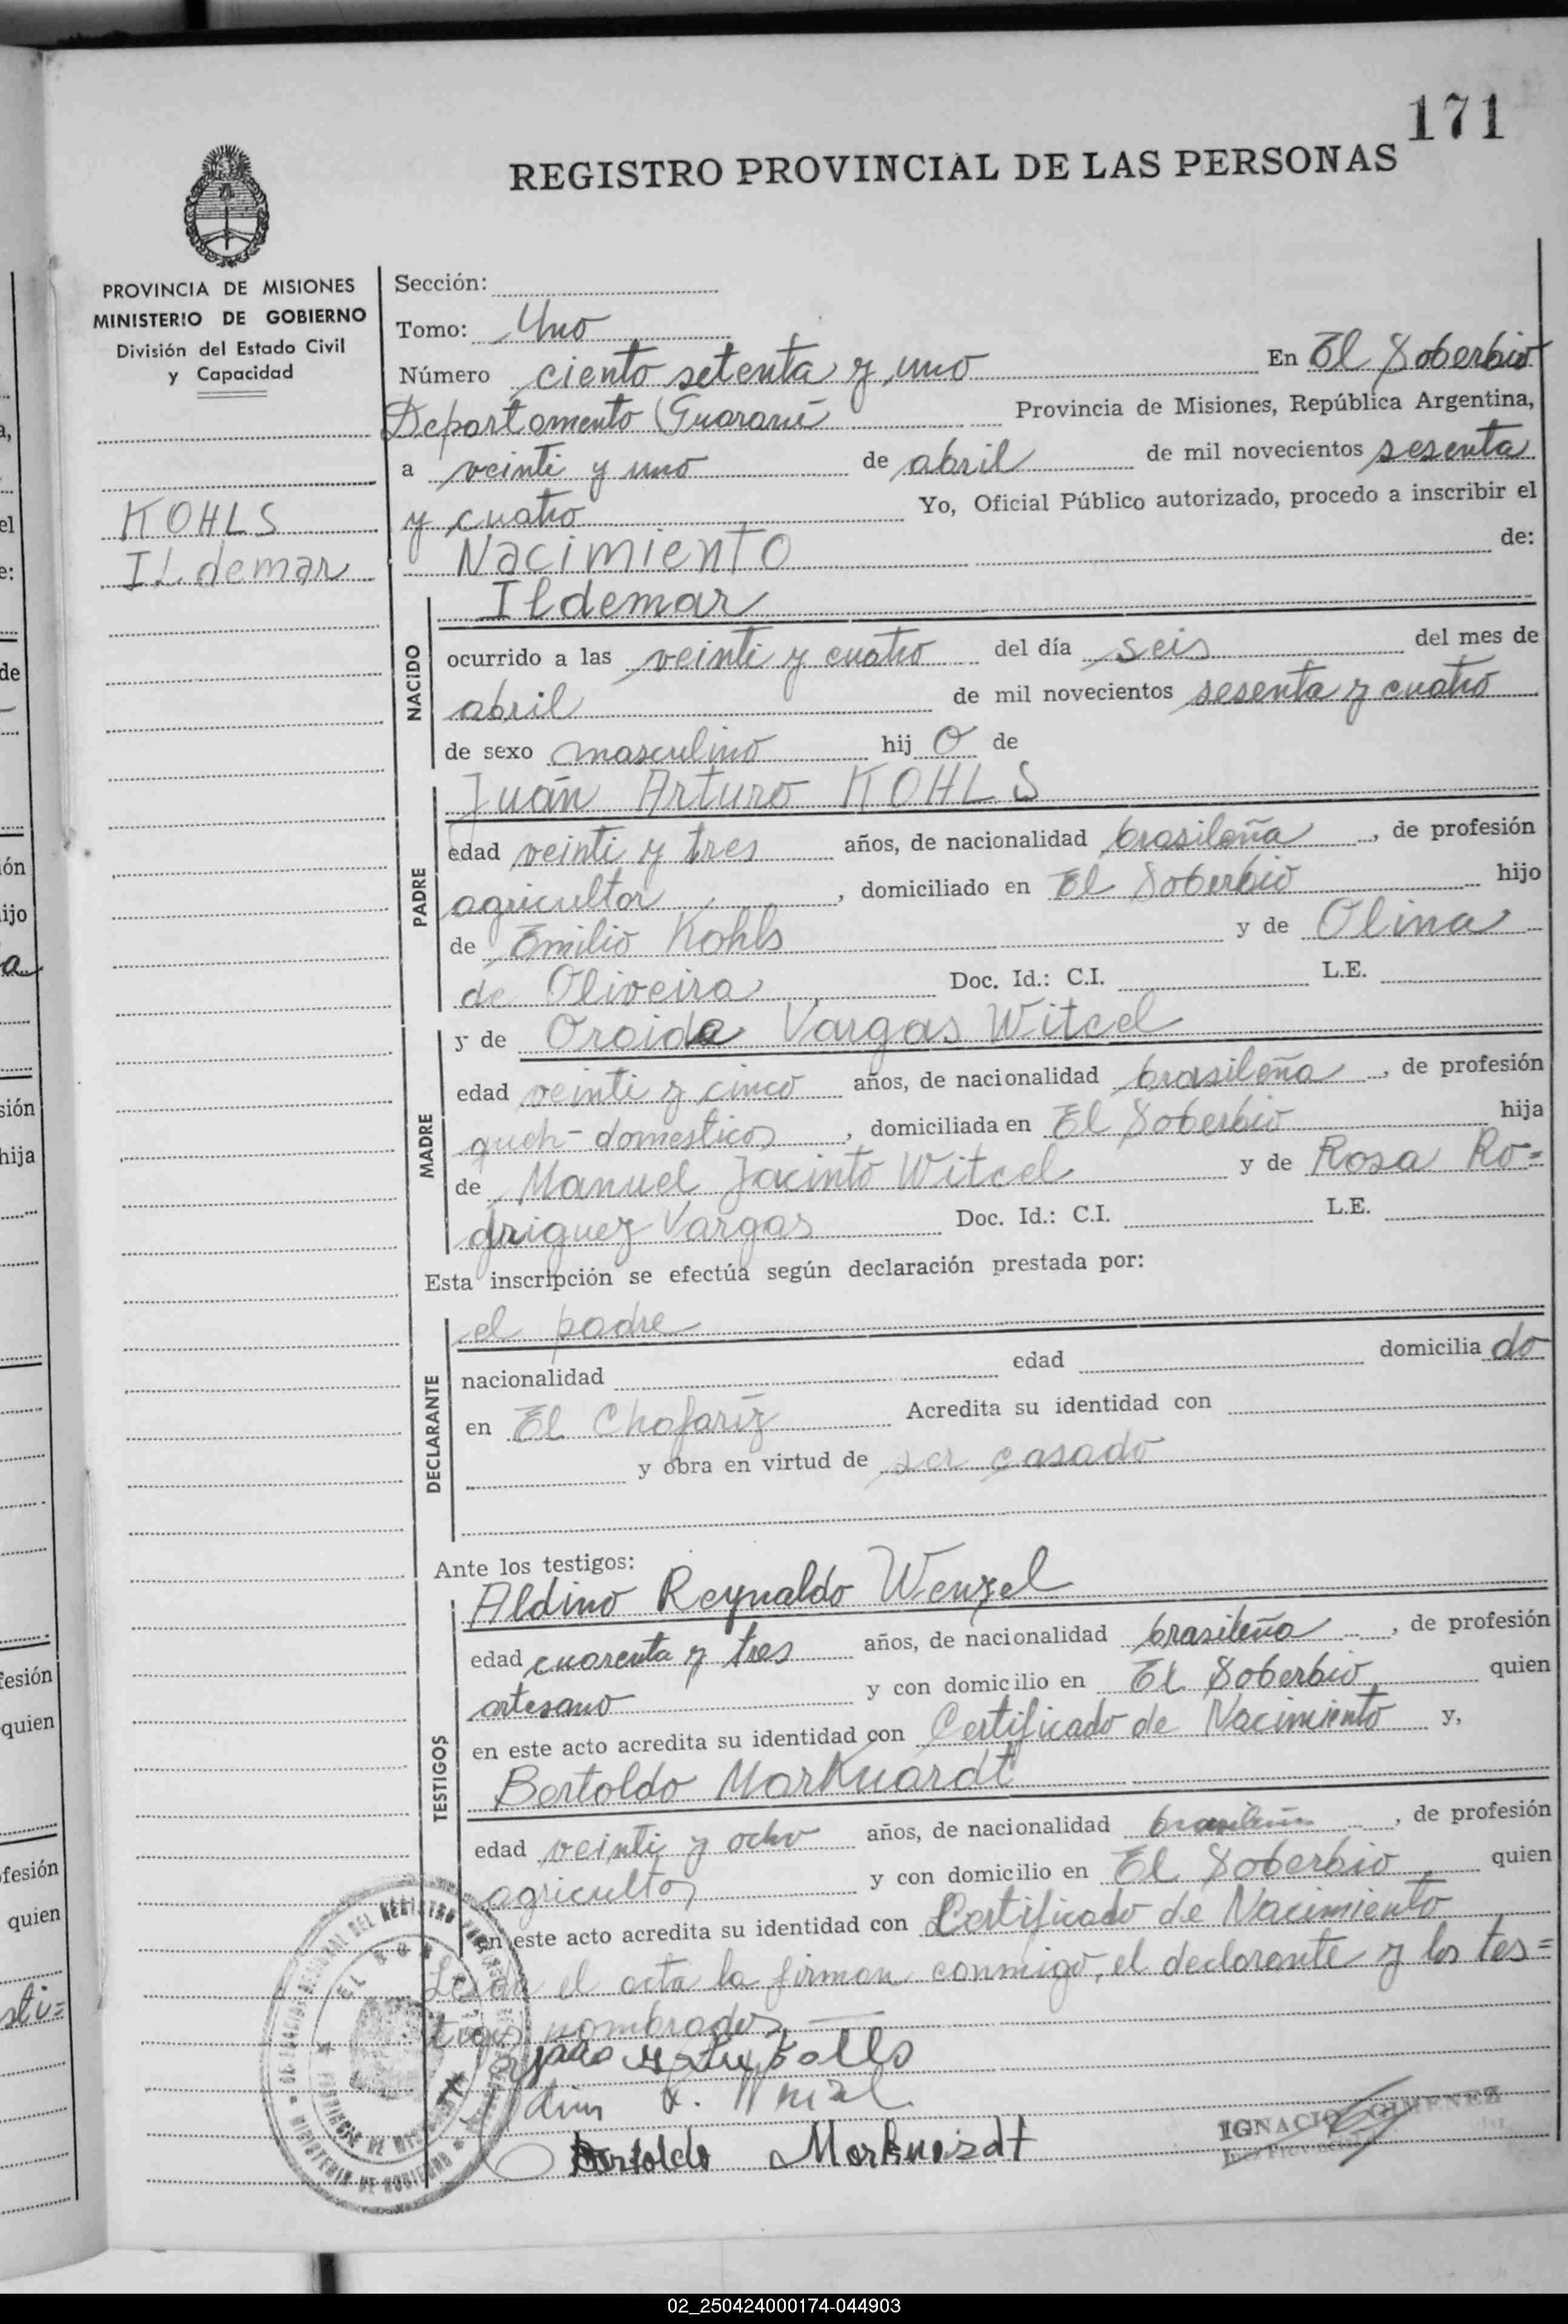 171
REGISTRO PROVINCIAL DE LAS PERSONAS
PROVINCIA DE MISIONES
MINISTERIO DE GOBIERNO
División del Estado Civil
y Capacidad
KOHLS
ILdemar
Sección:
Tomo: Uno
Número ciento setenta y uno En El Soberbio
Departamento Guaraní Provincia de Misiones, República Argentina,
a veinti y uno de abril de mil novecientos sesenta
y cuatro Yo, Oficial Público autorizado, procedo a inscribir el
Nacimiento de:
NACIDO
Ildemar
ocurrido a las veinti y cuatro del día seis del mes de
abril de mil novecientos sesenta y cuatro
de sexo masculino hij o de
PADRE
Juán Arturo KOHLS
edad veinti y tres años, de nacionalidad brasileña, de profesión
agricultor, domiciliado en El Soberbio hijo
de Emilio Kohls y de Olina
de Oliveira Doc. Id.: C.I. L.E.
MADRE
y de Oraida Vargas Witcel
edad veinti y cinco años, de nacionalidad brasileña, de profesión
queh-domesticos, domiciliada en El Soberbio hija
de Manuel Jacinto Witcel y de Rosa Ro=
driguez Vargas Doc. Id.: C.I. L.E.
Esta inscripción se efectúa según declaración prestada por:
DECLARANTE
el padre
nacionalidad edad domicilia do
en El Chafaríz Acredita su identidad con
y obra en virtud de ser casado
Ante los testigos:
TESTIGOS
Aldino Reynaldo Wenzel
edad cuarenta y tres años, de nacionalidad brasileña, de profesión
artesano y con domicilio en El Soberbio quien
en este acto acredita su identidad con Certificado de Nacimiento y,
Bertoldo Markuardt
edad veinti y ocho años, de nacionalidad brasileña, de profesión
agricultor y con domicilio en El Soberbio quien
en este acto acredita su identidad con Certificado de Nacimiento
Leída el acta la firman conmigo, el declarante y los tes=
tigos nombrados
Bertoldo Markuardt
IGNACIO GIMENEZ
02_250424000174-044903